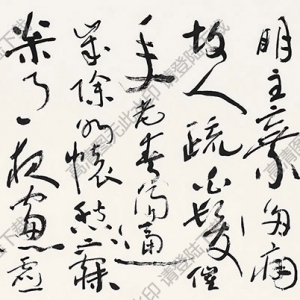 明主棄多病
故人疏白髮催
年老青陽逼
歲除永懷愁不寐
松月夜窗虛